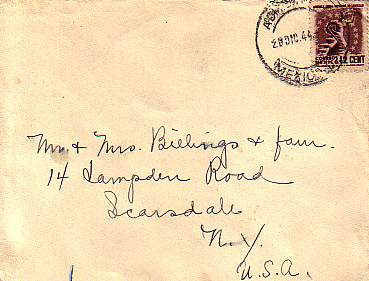 28 DIC. 44
MEXICO
CENT
Mr. & Mrs. Billings & fam.
14 Lampden Road
Scarsdale
N.Y.
U.S.A.